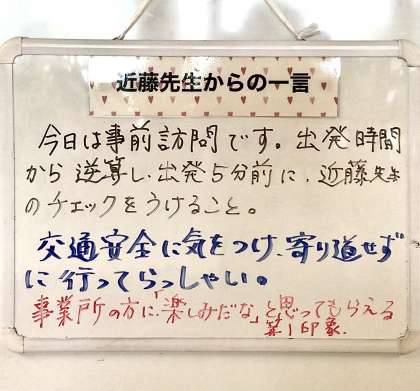 近藤先生からの一言
今日は事前訪問です。出発時間
から逆算し、出発5分前に、近藤先生
のチェックをうけること。
交通安全に気をつけ、寄り道せず
に行ってらっしゃい。
事業所の方に「楽しみだな」と思ってもらえる
第1印象.